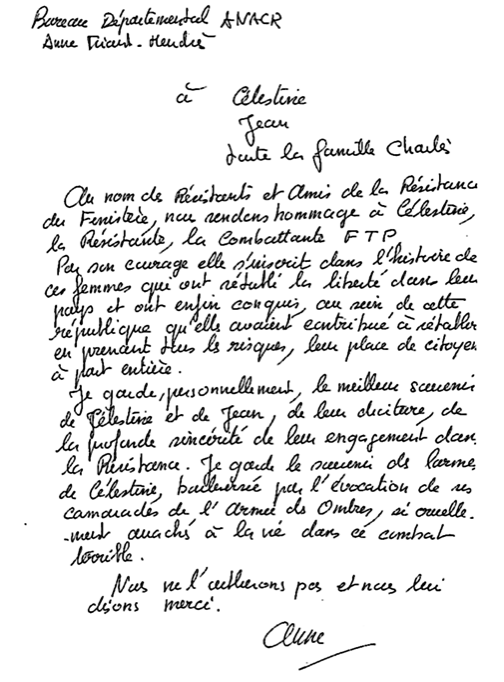 Bureau Départemental ANACR
Anne Friant-Mendrès
à Célestine
Jean
toute la famille Charlès
Au nom des Résistants et Amis de la Résistance
du Finistère, nous rendons hommage à Célestine,
la Résistante, la Combattante FTP
Par son courage elle s'inscrit dans l'histoire de
ces femmes qui ont rétabli la liberté dans leur
pays et ont enfin conquis, au sein de cette
république qu'elles avaient contribué à rétablir
en prenant tous les risques, leur place de citoyen
à part entière.
Je garde, personnellement, le meilleur souvenir
de Célestine et de Jean, de leur droiture, de
la profonde sincérité de leur engagement dans
la Résistance. Je garde le souvenir des larmes
de Célestine, bouleversée par l'évocation de ses
camarades de l'Armée des Ombres, si cruelle-
-ment arrachés à la vie dans ce combat
terrible.
Nous ne l'oublierons pas et nous lui
disons merci.
Anne